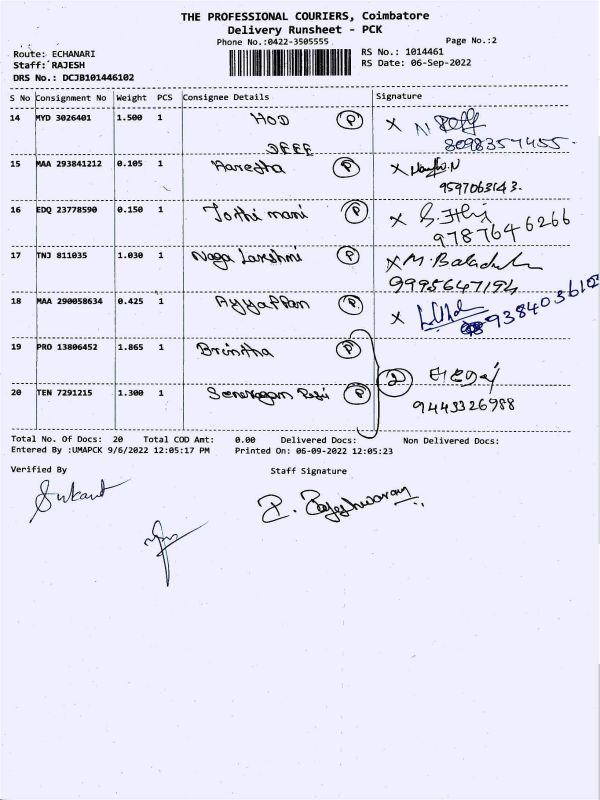 THE PROFESSIONAL COURIERS, Coimbatore
Delivery Runsheet - PCK
Phone No.:0422-3505555
Page No.:2
Route: ECHANARI
RS No.: 1014461
Staff: RAJESH
RS Date: 06-Sep-2022
DRS No.: DCJB101446102
S No Consignment No Weight PCS Consignee Details Signature
14 MYD 3026401 1.500 1 HOD P X
DEEE 8098357455
15 MAA 293841212 0.105 1 Haregha P X
9597063143.
16 EDQ 23778590 0.150 1 Jothi mani P X
9787646266
17 TNJ 811035 1.030 1 Naga Lakshmi P X M.
9995647194
18 MAA 290058634 0.425 1 Ayyappan P X 9384036102
19 PRO 13806452 1.865 1 Brintha P
2
20 TEN 7291215 1.300 1 P 9443326988
Total No. Of Docs: 20 Total COD Amt: 0.00 Delivered Docs: Non Delivered Docs:
Entered By :UMAPCK 9/6/2022 12:05:17 PM Printed On: 06-09-2022 12:05:23
Verified By Staff Signature
Sukant
P. Rajeshwaran